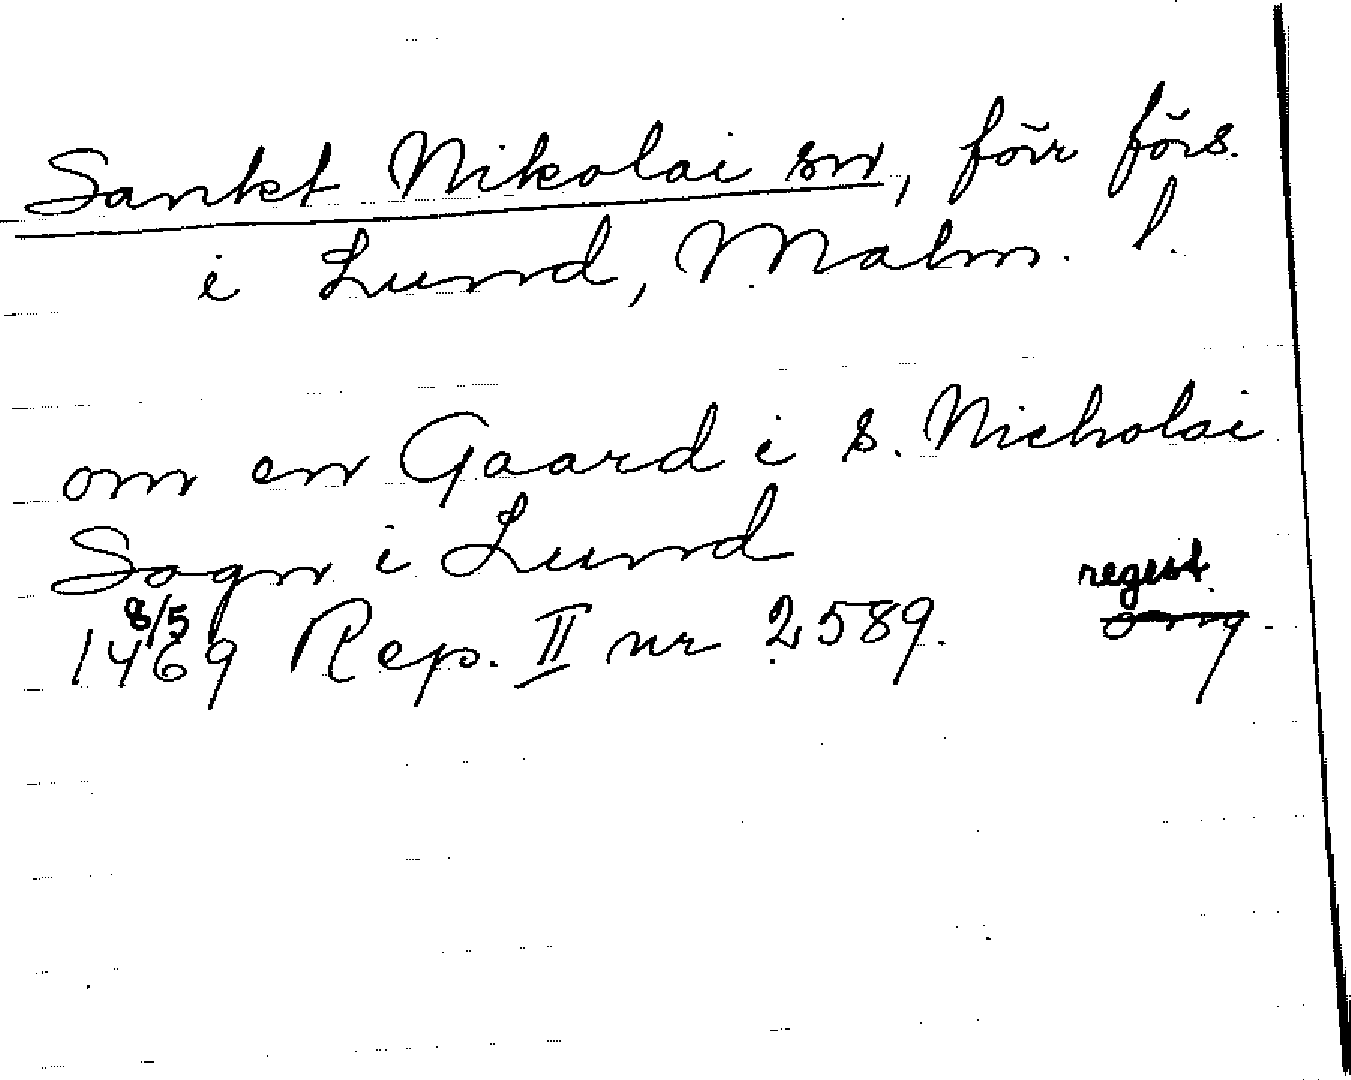 Sankt Nikolai sn, förr förs.
i Lund, Malm. l.
om en Gaard i S. Nicholai
Sogn i Lund
regest.
8/5
1469 Rep. II nr 2589. orig.